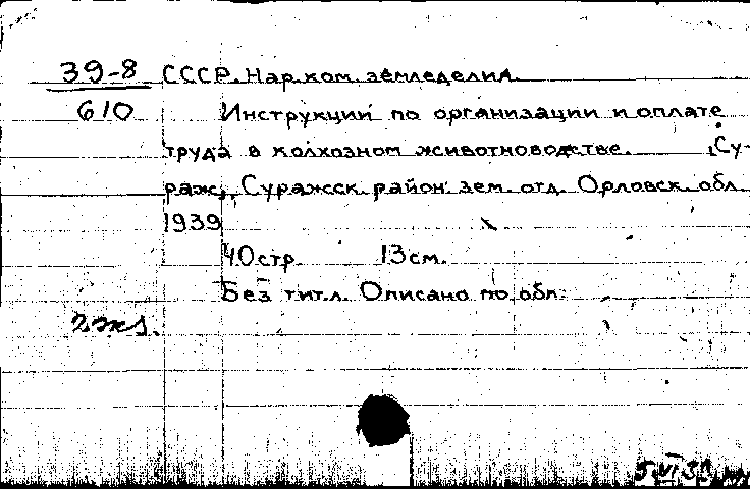 39-8 СССР. Нар. ком. земледелия.
610 Инструкции по организации и оплате
труда в колхозном животноводстве. [Су-
раж], Суражск. район. зем. отд. Орловск. обл.
1939
40 стр. 13 см.
Без тит. л. Описано по обл.
2 экз.
5 VI 39